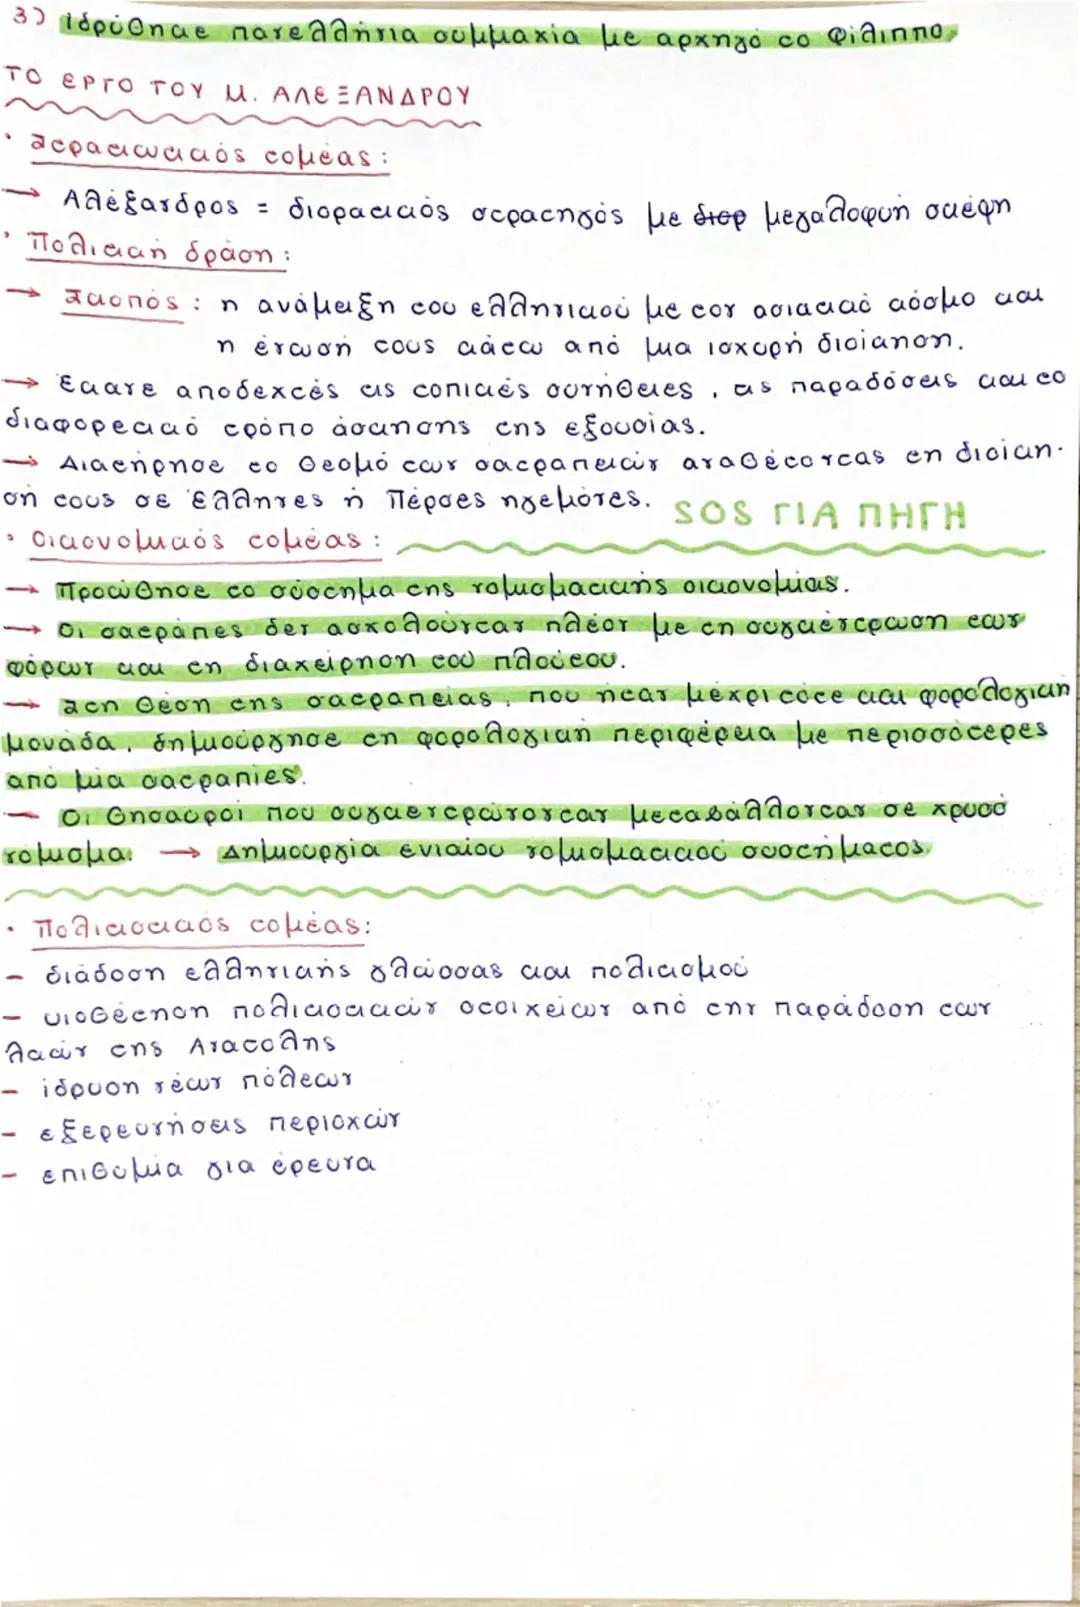 3) ιδρύθηκε πανελλήνια συμμαχία με αρχηγό το Φίλιππο.
ΤΟ ΕΡΓΟ ΤΟΥ Μ. ΑΛΕΞΑΝΔΡΟΥ
• Στρατιωτικός τομέας:
→ Αλέξανδρος = διορατικός στρατηγός με διορ μεγαλοφυή σκέψη
• Πολιτική δράση:
→ Σκοπός: η ανάμειξη του ελληνικού με τον ασιατικό κόσμο και
η ένωσή τους κάτω από μια ισχυρή διοίκηση.
→ Έκανε αποδεκτές τις τοπικές συνήθειες, τις παραδόσεις και το
διαφορετικό τρόπο άσκησης της εξουσίας.
→ Διατήρησε το θεσμό των σατραπειών αναθέτοντας τη διοίκη-
σή τους σε Έλληνες ή Πέρσες ηγεμόνες. SOS ΓΙΑ ΠΗΓΗ
• Οικονομικός τομέας:
→ Προώθησε το σύστημα της νομισματικής οικονομίας.
→ Οι σατράπες δεν ασχολούνταν πλέον με τη συγκέντρωση των
φόρων και τη διαχείρηση του πλούτου.
→ Στη θέση της σατραπείας, που ήταν μέχρι τότε και φορολογική
μονάδα, δημιούργησε τη φορολογική περιφέρεια με περισσότερες
από μία σατραπίες.
→ Οι θησαυροί που συγκεντρώνονταν μεταβάλλονταν σε χρυσό
νόμισμα. → Δημιουργία ενιαίου νομισματικού συστήματος.
• Πολιτιστικός τομέας:
- διάδοση ελληνικής γλώσσας και πολιτισμού
- υιοθέτηση πολιτιστικών στοιχείων από την παράδοση των
λαών της Ανατολής
- ίδρυση νέων πόλεων
- εξερευνήσεις περιοχών
- επιθυμία για έρευνα